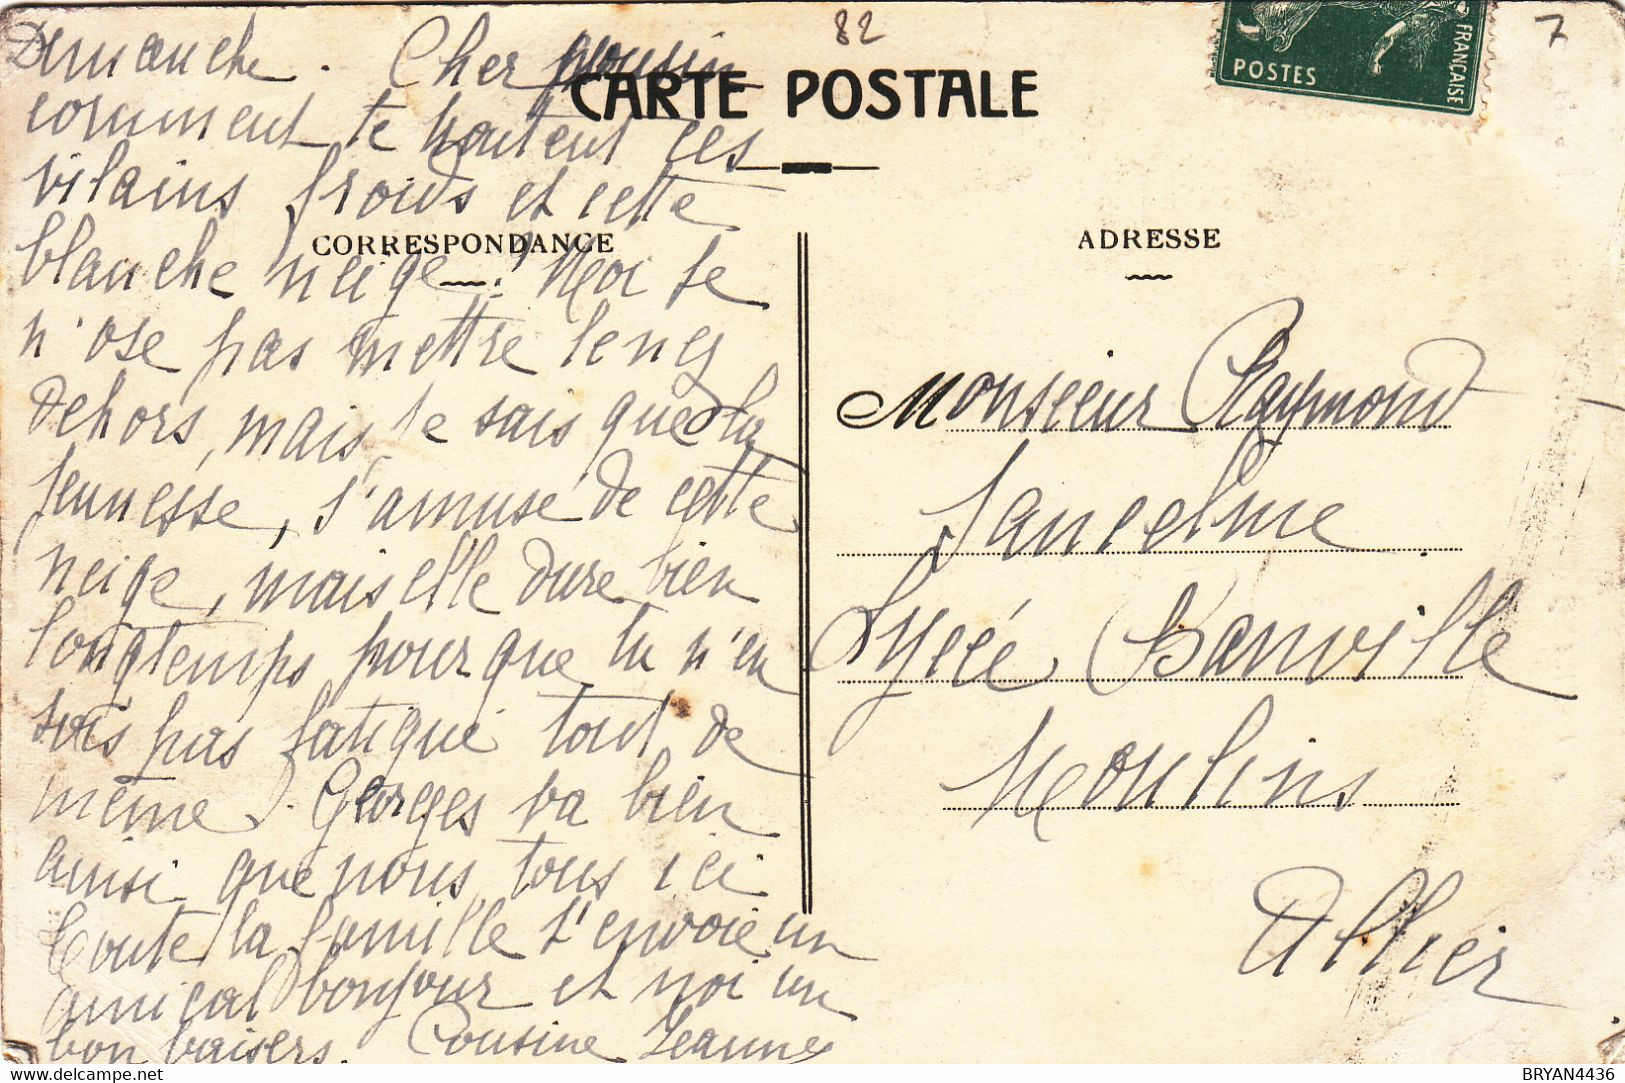 82
7
POSTES
FRANÇAISE
CARTE POSTALE
CORRESPONDANCE
ADRESSE
Dimanche. Cher cousin
comment te traitent ces
vilains froids et cette
blanche neige? Moi je
n'ose pas mettre le nez
dehors, mais je sais que la
jeunesse, s'amuse de cette
neige, mais elle dure bien
longtemps pour que tu n'en
sois pas fatigué tout de
même. Georges va bien
ainsi que nous tous ici
toute la famille t'envoie un
amical bonjour et moi un
bon baisers. Cousine Jeanne
Monsieur Raymond
Lancelme
Lycée Banville
Moulins
Allier
BRYAN4436
delcampe.net